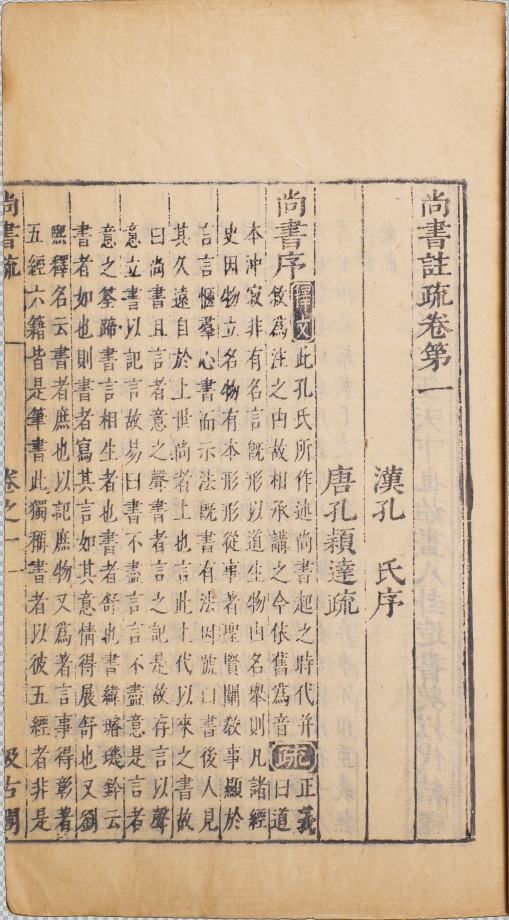 尚書註疏卷第一
漢孔　氏序
唐孔穎達疏
尚書序釋文此孔氏所作述尚書起之時代并
敘爲注之由故相承講之今依舊爲音疏正義曰道
本沖寂非有名言旣形以道生物由名舉則凡諸經
史因物立名物有本形形從事著聖賢闡教事顯於
言言愜羣心書而示法旣書有法因號曰書後人見
其久遠自於上世尚者上也言此上代以來之書故
曰尚書且言者意之聲書者言之記是故存言以聲
意立書以記言故易曰書不盡言言不盡意是言者
意之筌蹄書言相生者也書者舒也書緯璿璣鈐云
書者如也則書者寫其言如其意情得展舒也又劉
熙釋名云書者庶也以記庶物又爲著言事得彰著
五經六籍皆是筆書此獨稱書者以彼五經者非是
尚書疏
卷之一
汲古閣